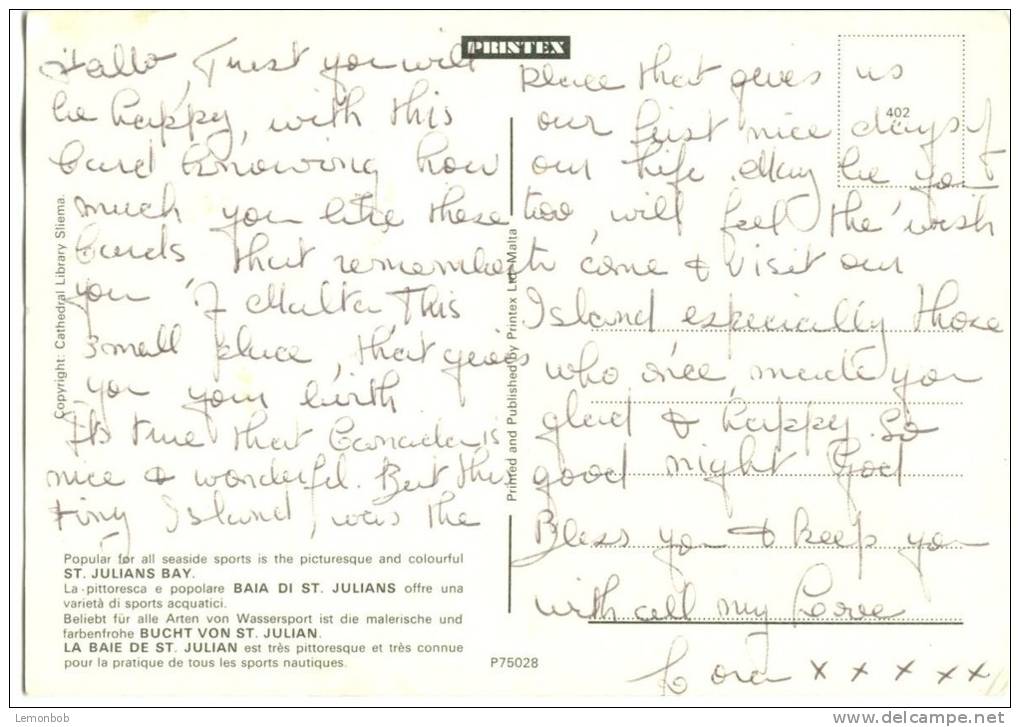 PRINTEX
Hallo, Trust you will
be happy, with this
Card knowing how
much you like those
Cards that remember
you of Malta, This
small place, that geves
you your birth
It's true that Canada is
nice & wonderful. But this
tiny Island, was the
place that geves us
our first nice days of
our life. May be you
too, will feel the wish
to come & visit our
Island especially those
who once made you
glad & happy. So
good night God
Bless you & keep you
with all my Love
Cora x x x x x
402
Copyright: Cathedral Library Sliema.
Printed and Published by Printex Ltd. Malta
Popular for all seaside sports is the picturesque and colourful
ST. JULIANS BAY.
La pittoresca e popolare BAIA DI ST. JULIANS offre una
varietà di sports acquatici.
Beliebt für alle Arten von Wassersport ist die malerische und
farbenfrohe BUCHT VON ST. JULIAN.
LA BAIE DE ST. JULIAN est très pittoresque et très connue
pour la pratique de tous les sports nautiques.
P75028
Lemonbob
delcampe.net